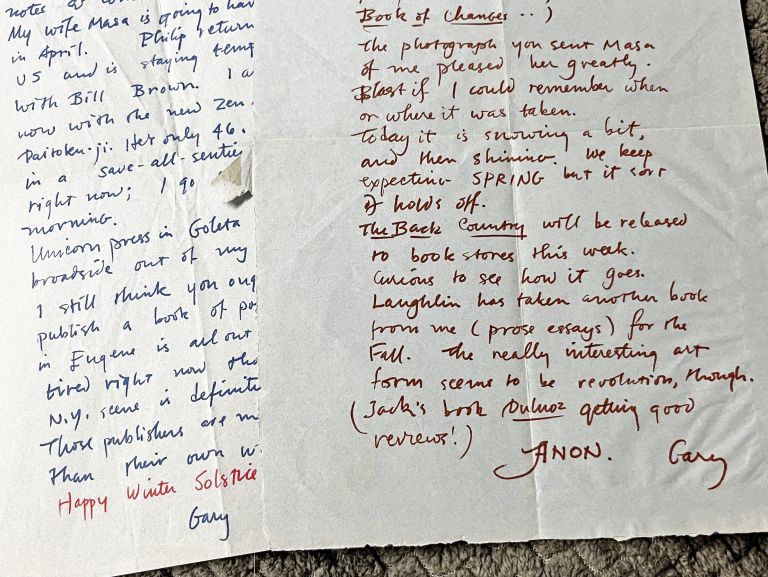 notes at
My wife Masa is going to hav
in April. Philip return
US and is staying temp
with Bill Brown. I a
now with the new Zen
Daitoku-ji. He's only 46.
in a save-all-sentie
right now; I go
morning.
Unicorn press in Goleta
broadside out of my
I still think you oug
publish a book of po
in Eugene is all out
tired right now tho
N.Y. scene is definite
Those publishers are m
than their own w
Happy Winter Solstice
Gary
Book of Changes . . )
The photograph you sent Masa
of me pleased her greatly.
Blast if I could remember when
or where it was taken.
Today it is snowing a bit,
and then shining. We keep
expecting SPRING but it sort
of holds off.
The Back Country will be released
to book stores this week.
Curious to see how it goes.
Laughlin has taken another book
from me (prose essays) for the
Fall. The really interesting art
form seems to be revolution, though.
(Jack's book Duluoz getting good
reviews!)
ANON. Gary